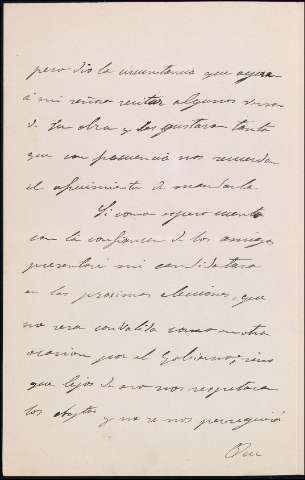 pero dio la circunstancia que oyera
á mi señora recitar algunos versos
de su obra y los gustara tanto
que con frecuencia nos recuerda
el ofrecimiento de mandarla
Si como espero cuento
con la confianza de los amigos
presentaré mi candidatura
en las procsimas elecciones, que
no sera combatida como en otra
ocasion por el Gobierno; sino
que lejos de eso nos respetaran
los
y no se nos perseguirá
Que